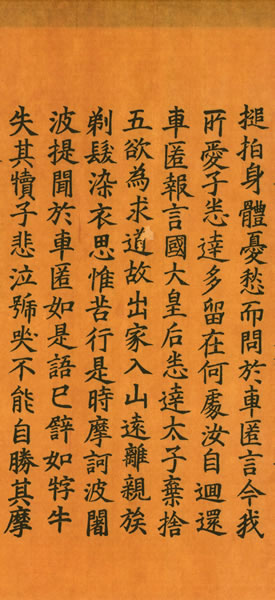 搥拍身體憂愁而問於車匿言今我
所愛子悉達多留在何處汝自迴還
車匿報言國大皇后悉達太子棄捨
五欲為求道故出家入山遠離親族
剃髮染衣思惟苦行是時摩訶波闍
波提聞於車匿如是語已譬如牸牛
失其犢子悲泣號哭不能自勝其摩